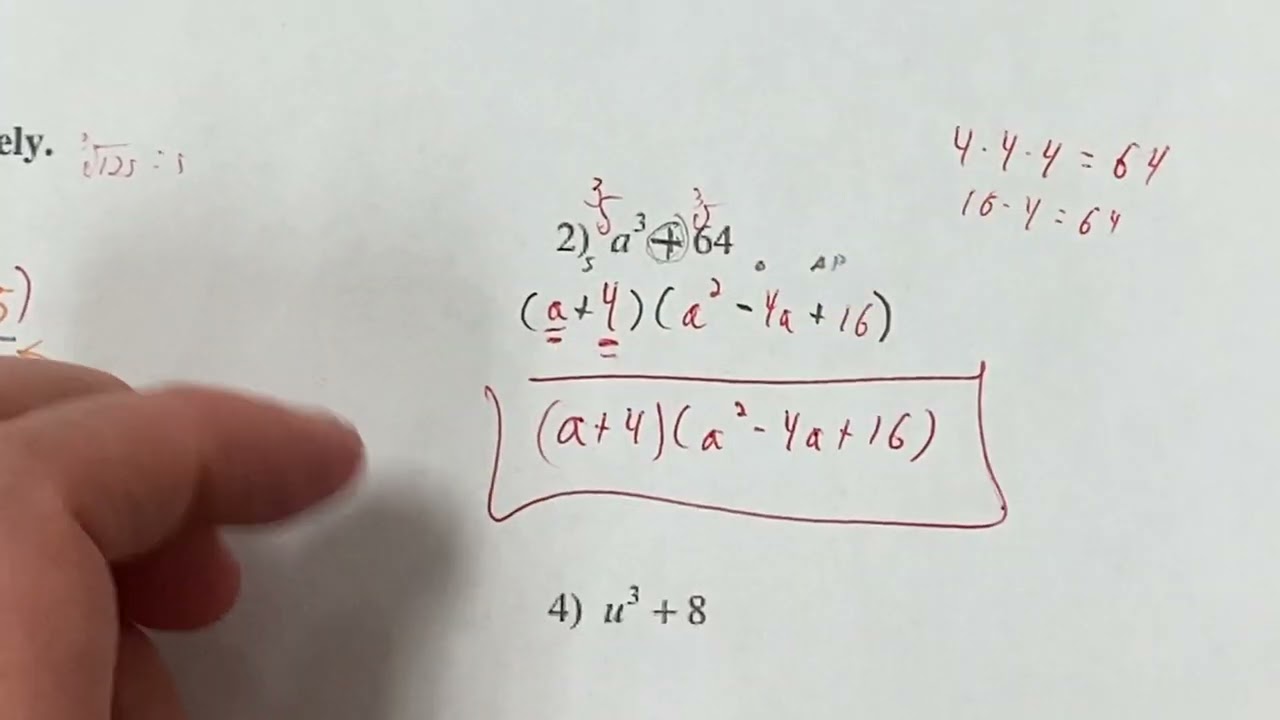 ely. ∛125 = 5
4·4·4 = 64
16·4 = 64
3 3
2) a³ + 64
S O AP
5)
(a+4)(a²-4a+16)
(a+4)(a²-4a+16)
4) u³ + 8